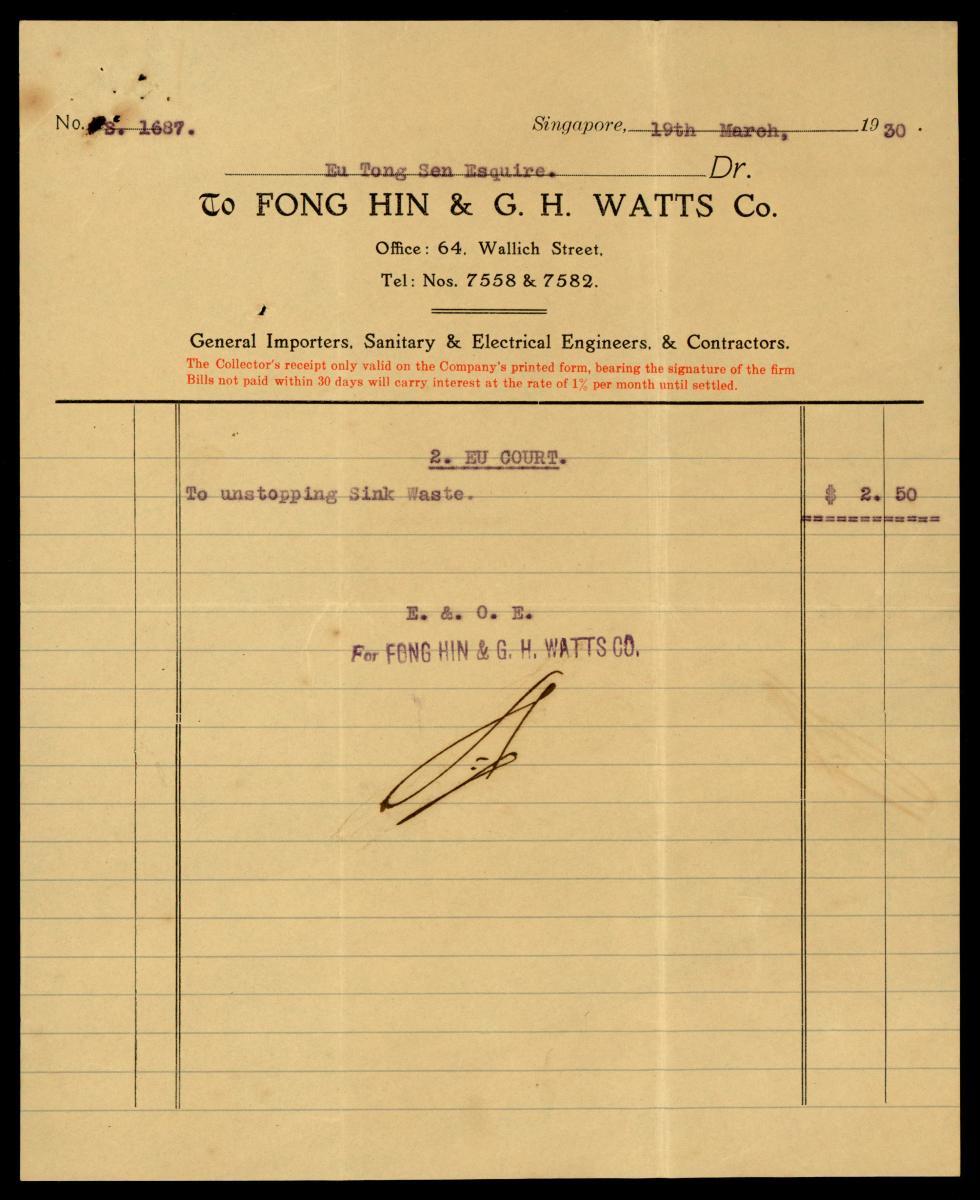 No. S. 1687.
Singapore, 19th March, 1930.
Eu Tong Sen Esquire. Dr.
To FONG HIN & G. H. WATTS Co.
Office: 64, Wallich Street,
Tel: Nos. 7558 & 7582.
General Importers, Sanitary & Electrical Engineers, & Contractors.
The Collector's receipt only valid on the Company's printed form, bearing the signature of the firm
Bills not paid within 30 days will carry interest at the rate of 1% per month until settled.
2. EU COURT.
To unstopping Sink Waste. $ 2. 50
E. &. O. E.
For FONG HIN & G. H. WATTS CO.